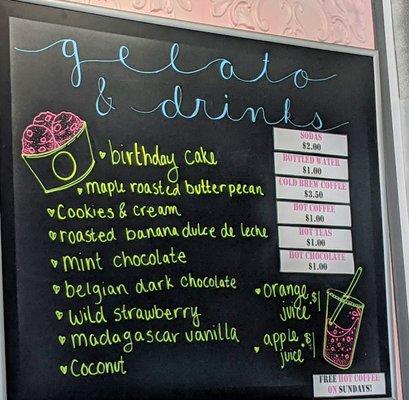 gelato
& drinks
birthday cake
maple roasted butter pecan
Cookies & cream
roasted banana dulce de leche
mint chocolate
belgian dark chocolate
wild strawberry
madagascar vanilla
Coconut
SODAS
$2.00
BOTTLED WATER
$1.00
COLD BREW COFFEE
$3.50
HOT COFFEE
$1.00
HOT TEAS
$1.00
HOT CHOCOLATE
$1.00
orange $1
juice
apple $1
juice
FREE HOT COFFEE
ON SUNDAYS!